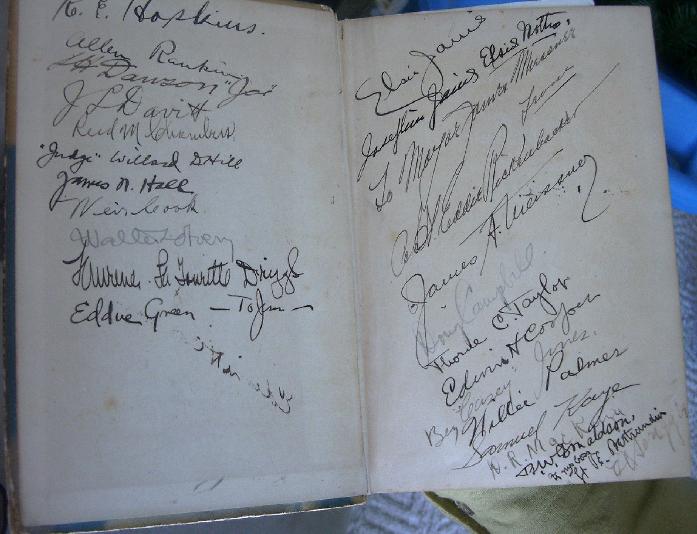 R. E. Hopkins.
Allen Rankin
L H Dawson Jar
J L Davitt
Reed M Chambers
"Judge" Willard D Hill
James N. Hall
Weir Cook
Walter Avery
Laurence La Tourette Driggs
Eddie Green — To Jim —
Elsie Janis
Josephine Janis Elsie's Mother,
To Major James Meissner
From
Capt. Eddie Rickenbacker
James A. Meissner,
Doug Campbell
Thorne C. Taylor
Edwin H Cooper
Ben Casey Jones.
Willie Palmer
Samuel Kaye
H. R.
Donaldson